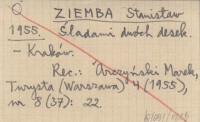 ZIEMBA Stanisław
1955. Śladami dwóch desek.
- Kraków.
Rec.: Arczyński Marek,
Turysta (Warszawa) 4 (1955),
nr 8 (37): 22.